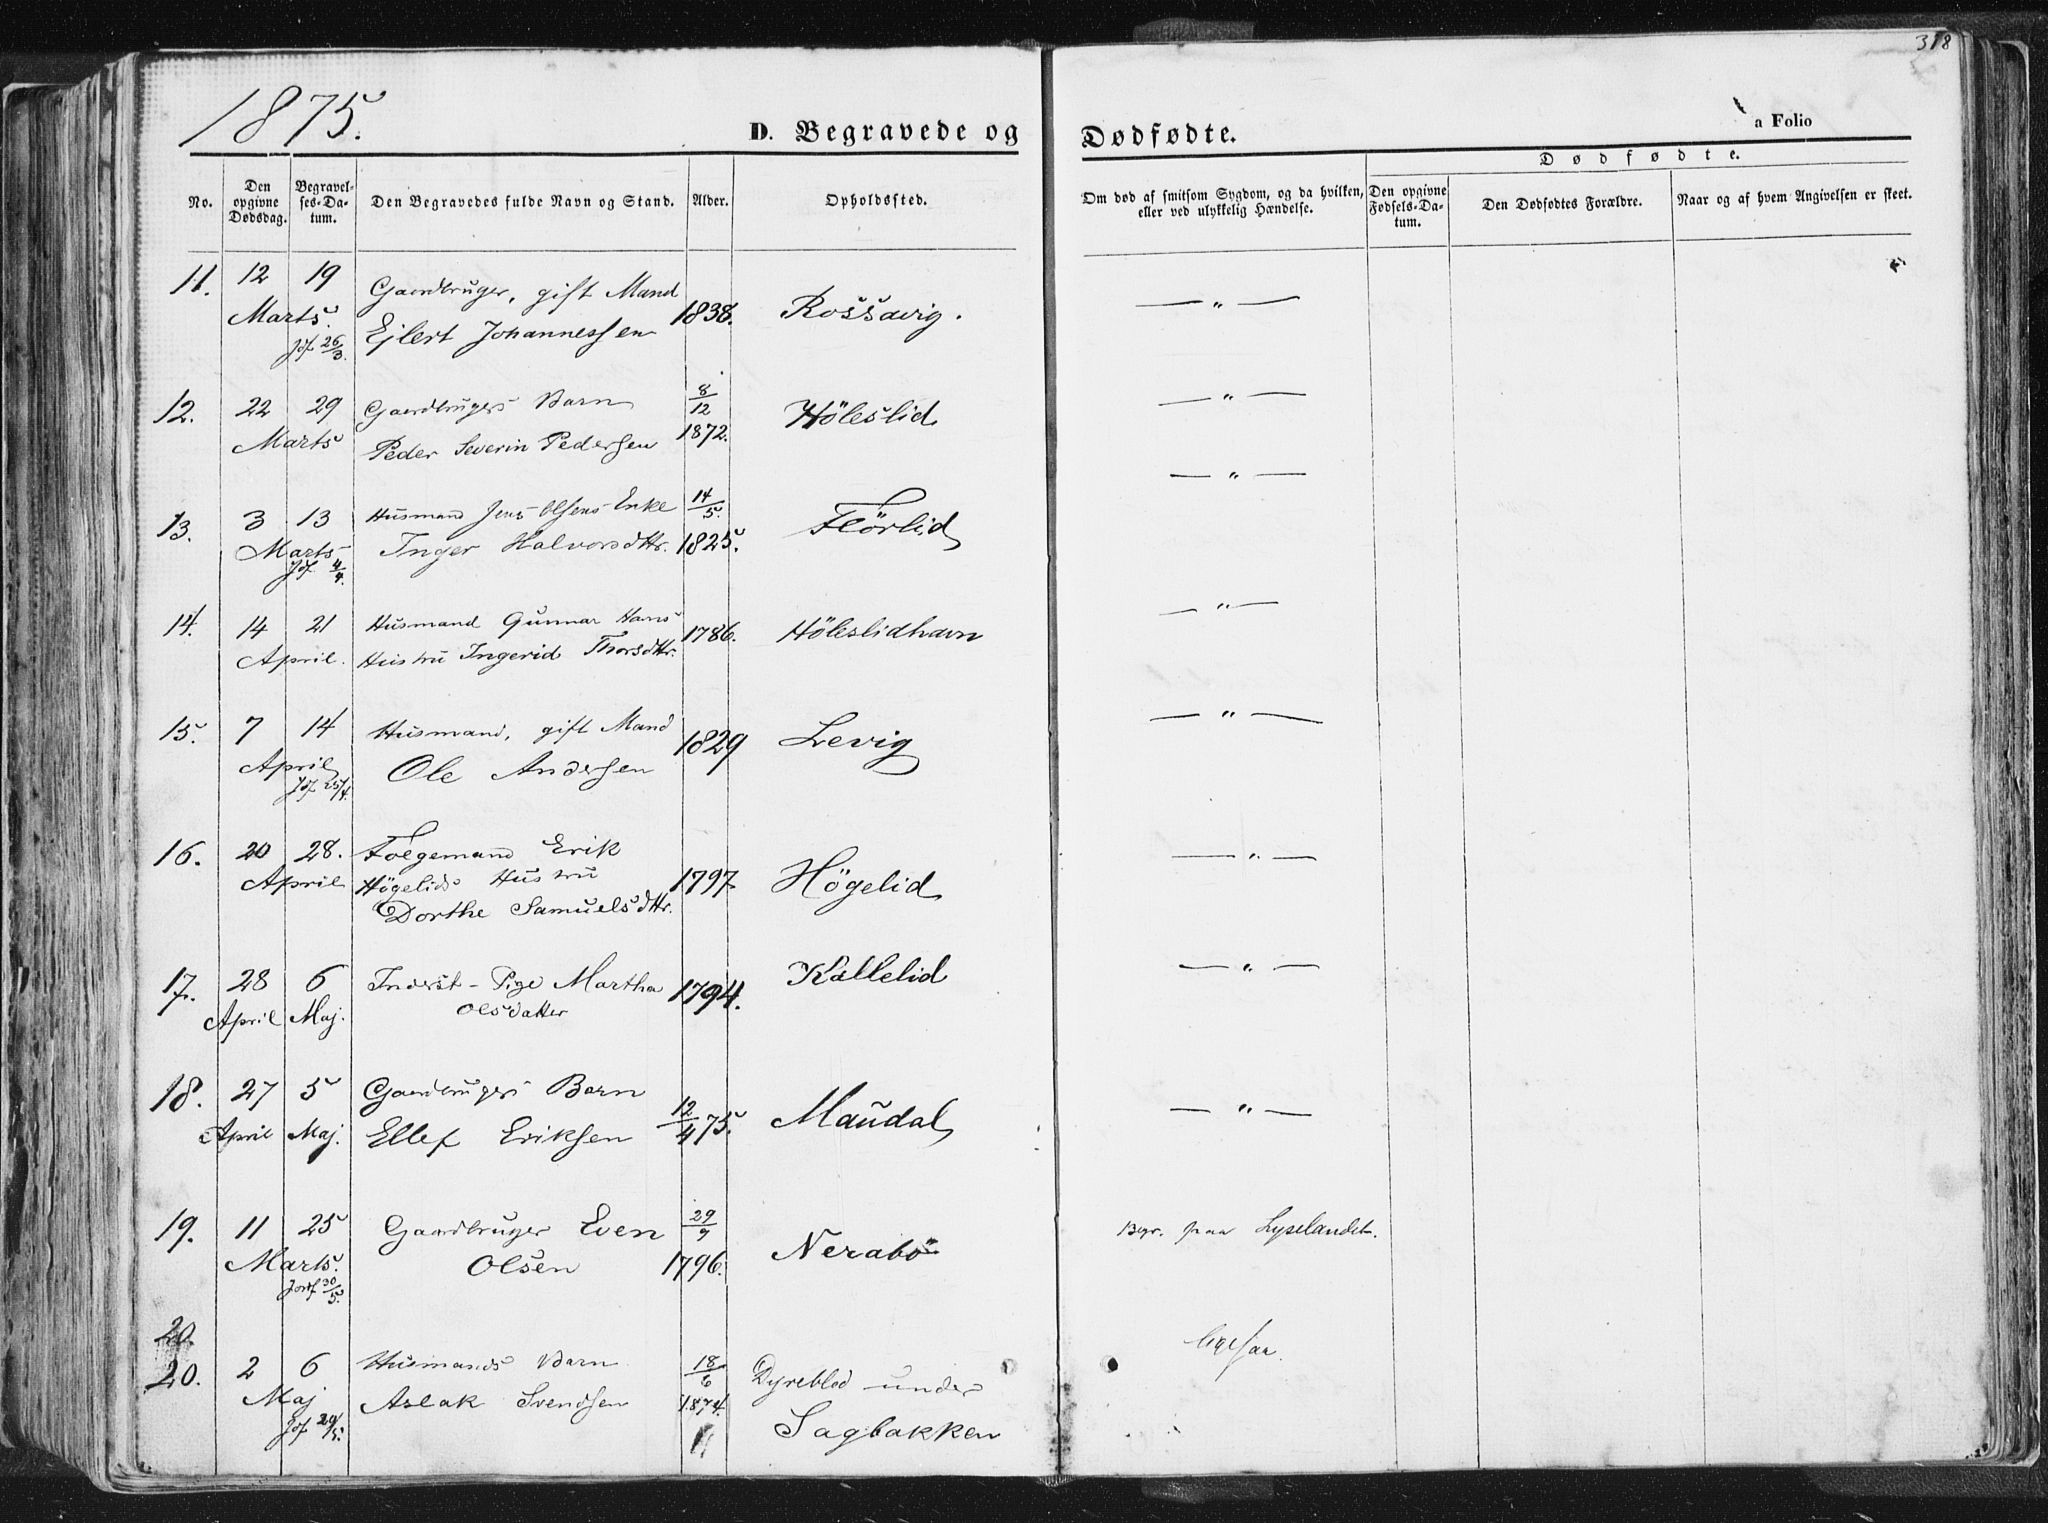 318
1875.
D. Begravede og Dødfødte.
a Folio
No.
Den opgivne Dødsdag.
Begravelses-Datum.
Den Begravedes fulde Navn og Stand.
Alder.
Opholdssted.
Om død af smitsom Sygdom, og da hvilken, eller ved ulykkelig Hændelse.
Dødfødte.
Den opgivne Fødsels-Datum.
Den Dødfødtes Forældre.
Naar og af hvem Angivelsen er skeet.
11. 12 19 Gaardbruger, gift Mand
Marts. Ejlert Johannessen 1838. Rossavig. — " —
Jdf 26/3.
12. 22 29 Gaardbrugers Barn 8/12 Höleslid — " —
Marts Peder Severin Pedersen 1872.
13. 3 13 Husmand Jens Olsens Enke 14/5. Flörlid — " —
Marts Inger Halvorsdttr. 1825.
Jdf 4/4.
14. 14 21 Husmand Gunnar Hans 1786. Höleslidhavn — " —
April. Hustru Ingerid Thorsdttr.
15. 7 14 Husmand, gift Mand 1829 Levig — " —
April Ole Andersen
Jdf 25/4.
16. 20 28. Folgemand Erik
April Högelids Hustru 1797. Högelid — " —
Dorthe Samuelsdttr.
17. 28 6 Inderst-Pige Martha 1794. Kallelid — " —
April Maj. Olsdatter
18. 27 5 Gaardbrugers Barn
April Maj. Ellef Eriksen 12/4 75. Maudal — " —
19. 11 25 Gaardbruger Even 29/9 Nerabö Begr. paa Lyselandet.
Marts. Olsen 1796.
Jordf 30/5.
20.
20. 2 6 Husmands Barn 18/6 Dyreblod under Ligesaa.
Maj Aslak Svendsen 1874. Sagbakken
Jdf 29/5.